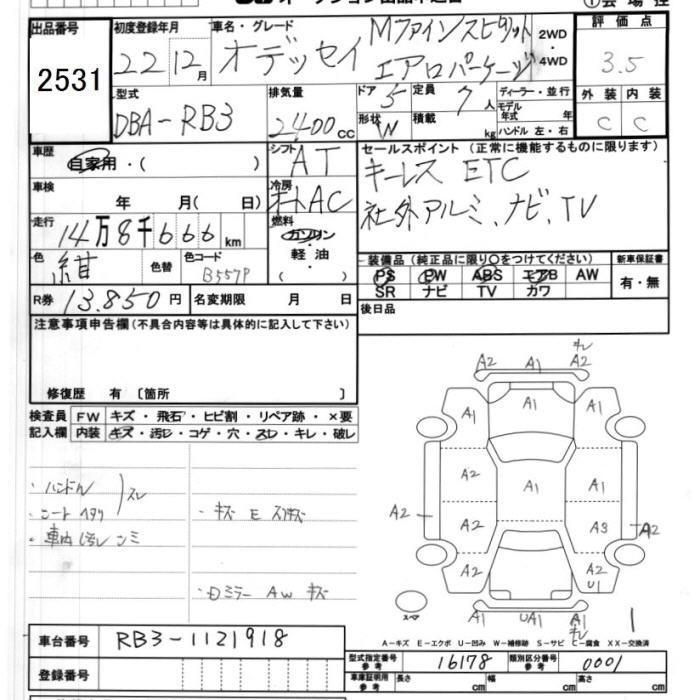 出品番号
2531
初度登録年月
22 12月
車名・グレード
オデッセイ Mファインスピリット
エアロパッケージ
2WD・4WD
評価点
3.5
型式
DBA-RB3
排気量
2400cc
ドア 5
定員 7人
形状 W
積載 kg
ディーラー・並行
モデル年式 年
ハンドル 左・右
外装 内装
C C
車歴
自家用・( )
シフト AT
セールスポイント (正常に機能するものに限ります)
キーレス ETC
社外アルミ、ナビ、TV
車検
年 月( 日)
冷房
オートAC
走行
14万8千666km
燃料
ガソリン・軽油・( )
色 紺
色替
色コード B557P
装備品 (純正品に限り〇をつけてください)
PS PW ABS エアB AW
SR ナビ TV カワ
新車保証書
有・無
R券 13,850円
名変期限 月 日
後日品
注意事項申告欄(不具合内容等は具体的に記入して下さい)
修復歴 有 〔箇所 〕
検査員記入欄
FW キズ・飛石・ヒビ割・リペア跡・×要
内装 キズ・汚レ・コゲ・穴・スレ・キレ・破レ
・ハンドル
スレ
・シート ヘタリ
・車内 汚レ シミ
・キズ E
・Dミラー AW キズ
キレ
A2 A1 A2
A1 A1 A1
A2 A1 A1
A2 A2 A3 A2
A2 A1 A2
U1
A1 UA1 A1
キレ
スペア
1
A-キズ E-エクボ U-凹み W-補修跡 S-サビ C-腐食 XX-交換済
車台番号
RB3-1121918
登録番号
型式指定番号 参考 16178
類別区分番号 参考 0001
車庫証明用 参考 長さ cm 幅 cm 高さ cm